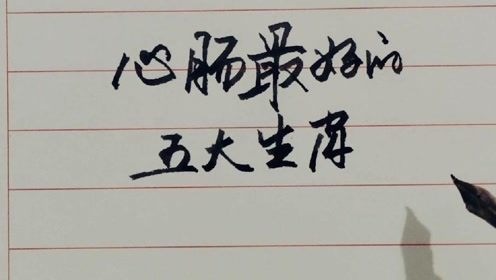 心肠最好的
五大生肖